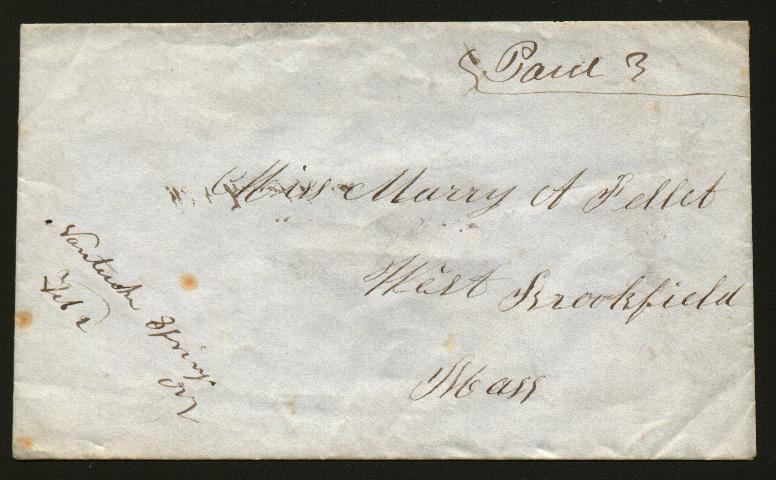 Paid 3
Miss Marry A Pellet
West Brookfield
Mass
Nantucket Springs
Feb 2